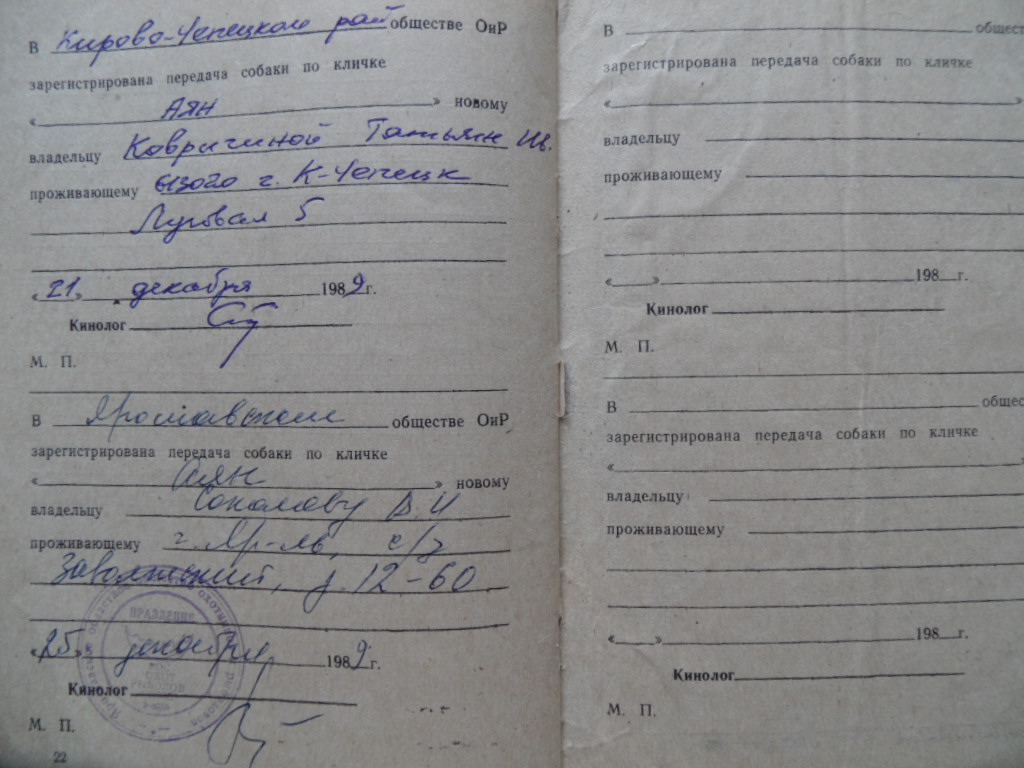 В Кирово-Чепецком рай обществе ОиР
зарегистрирована передача собаки по кличке
« Аян » новому
владельцу Ковричиной Татьян Ив.
проживающему 613020 г. К-Чепецк
Луговая 5
«21» декабря 1989г.
Кинолог
М. П.
В Ярославском обществе ОиР
зарегистрирована передача собаки по кличке
« Аян » новому
владельцу Соколову В. И.
проживающему г. Яр-ль, с/з
Заволжский, д. 12-60
«25» декабря 1989г.
ПРАВЛЕНИЕ
Кинолог
М. П.
22
В общест
зарегистрирована передача собаки по кличке
« »
владельцу
проживающему
« » 198 г.
Кинолог
М. П.
В общес
зарегистрирована передача собаки по кличке
«
владельцу
проживающему
« » 198 г.
Кинолог
М. П.